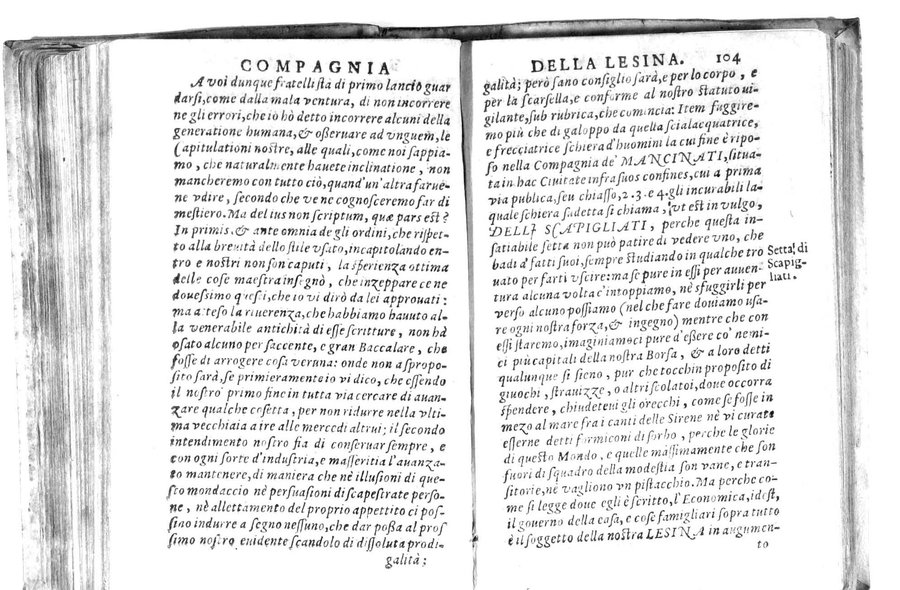 COMPAGNIA
A voi dunque fratelli stà di primo lancio guar
darsi, come dalla mala ventura, di non incorrere
ne gli errori, che io hò detto incorrere alcuni della
generatione humana, & osseruare ad vnguem, le
Capitulationi nostre, alle quali, come noi sappia-
mo, che naturalmente hauete inclinatione, non
mancheremo con tutto ciò, quand'un'altra faruè-
ne vdire, secondo che ve ne cognosceremo far di
mestiero. Ma del ius non scriptum, quæ pars est?
In primis, & ante omnia de gli ordini, che rispet-
to alla breuità dello stile vsato, incapitolando en-
tro e nostri non son caputi, la sperienza ottima
delle cose maestra insegnò, che inzeppare ce ne
douessimo questi, che io vi dirò da lei approuati:
ma atteso la riuerenza, che habbiamo hauuto al-
la venerabile antichità di esse scritture, non hà
osato alcuno per saccente, e gran Baccalare, che
fosse di arrogere cosa veruna: onde non a spropo-
sito sarà, se primieramente io vi dico, che essendo
il nostro primo fine in tutta via cercare di auan-
zare qualche cosetta, per non ridurre nella vlti-
ma vecchiaia a ire alle mercedi altrui; il secondo
intendimento nostro fia di conseruar sempre, e
con ogni sorte d'industria, e masseritia l'auanza-
to mantenere, di maniera che nè illusioni di que-
sto mondaccio nè persuasioni di scapestrate perso-
ne, nè allettamento del proprio appetito ci pos-
sino indurre a segno nessuno, che dar possa al pros
simo nostro euidente scandolo di dissoluta prodi-
galità;
DELLA LESINA. 104
galità; però sano consiglio sarà, e per lo corpo, e
per la scarsella, e conforme al nostro statuto ui-
gilante, sub rubrica, che comincia: Item fuggire-
mo più che di galoppo da quella scialacquatrice,
e frecciatrice schiera d'huomini la cui fine è ripo-
so nella Compagnia de' MANCINATI, situa-
ta in hac Ciuitate infra suos confines, cui a prima
via publica, seu chiasso, 2. 3. e 4. gli incurabili la-
quale schiera sadetta si chiama, ut est in vulgo,
DELLI SCAPIGLIATI, perche questa in-
satiabile setta non può patire di vedere vno, che
badi a' fatti suoi, sempre studiando in qualche tro
uato per farti vscire: ma se pure in essi per auuen-
tura alcuna volta c'intoppiamo, nè sfuggirli per
verso alcuno possiamo (nel che fare douiamo usa-
re ogni nostra forza, & ingegno) mentre che con
essi staremo, imaginiamoci pure d'essere co' nemi-
ci più capitali della nostra Borsa, & a loro detti
qualunque si sieno, pur che tocchin proposito di
giuochi, strauizze, o altri scolatoi, doue occorra
spendere, chiudeteui gli orecchi, come se fosse in
mezo al mare fra i canti delle Sirene nè vi curate
esserne detti formiconi di sorbo, perche le glorie
di questo Mondo, e quelle massimamente che son
fuori di squadro della modestia son vane, e tran-
sitorie, nè vagliono vn pistacchio. Ma perche co-
me si legge doue egli è scritto, l'Economica, idest,
il gouerno della casa, e cose famigliari sopra tutto
è il soggetto della nostra LESINA in augumen-
to
Setta di
Scapig-
liati.